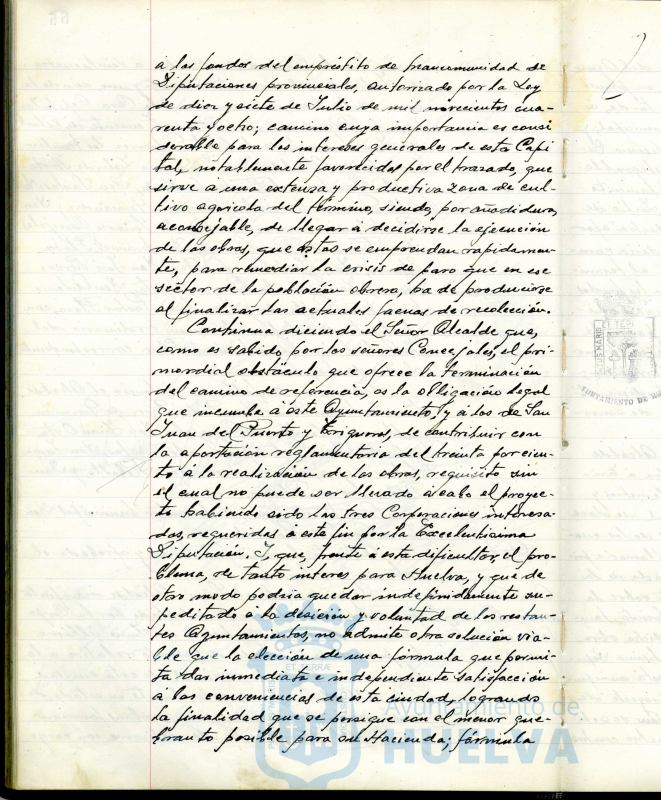 á los fondos del empréstito de mancomunidad de
Diputaciones provinciales, autorizado por la Ley
de diez y siete de Julio de mil novecientos cua-
renta y ocho; camino cuya importancia es consi
derable para los intereses generales de esta Capi
tal, notablemente favorecidos por el trazado, que
sirve a una extensa y productiva zona de cul-
tivo agrícola del término, siendo, por añadidura,
aconsejable, de llegar á decidirse la ejecución
de las obras, que éstas se emprendan rapidamen-
te, para remediar la crisis de paro que en ese
sector de la población obrera, ha de producirse
al finalizar las actuales faenas de recolección.
Continua diciendo el Señor Alcalde que,
como es sabido por los señores Concejales, el pri-
mordial obstáculo que ofrece la terminación
del camino de referencia, es la obligación legal
que incumbe á éste Ayuntamiento, y á los de San
Juan del Puerto y Trigueros, de contribuir con
la aportación reglamentaria del treinta por cien-
to á la realización de las obras, requisito sin
el cual no puede ser llevado á cabo el proyec-
to habiendo sido las tres Corporaciones interesa-
das, requeridas á este fin por la Excelentisima
Diputación. Y, que, frente á esta dificultad, el pro-
blema, de tanto interes para Huelva, y que de
otro modo podria quedar indefinidamente su-
peditado á la desición y voluntad de los restan-
tes Ayuntamientos, no admite otra solución via-
ble que la elección de una fórmula que permi-
ta dar inmediata e independiente satisfacción
á las conveniencias de esta ciudad, logrando
la finalidad que se persigue con el menor que-
branto posible para su Hacienda; fórmula
Ayuntamiento de
HUELVA